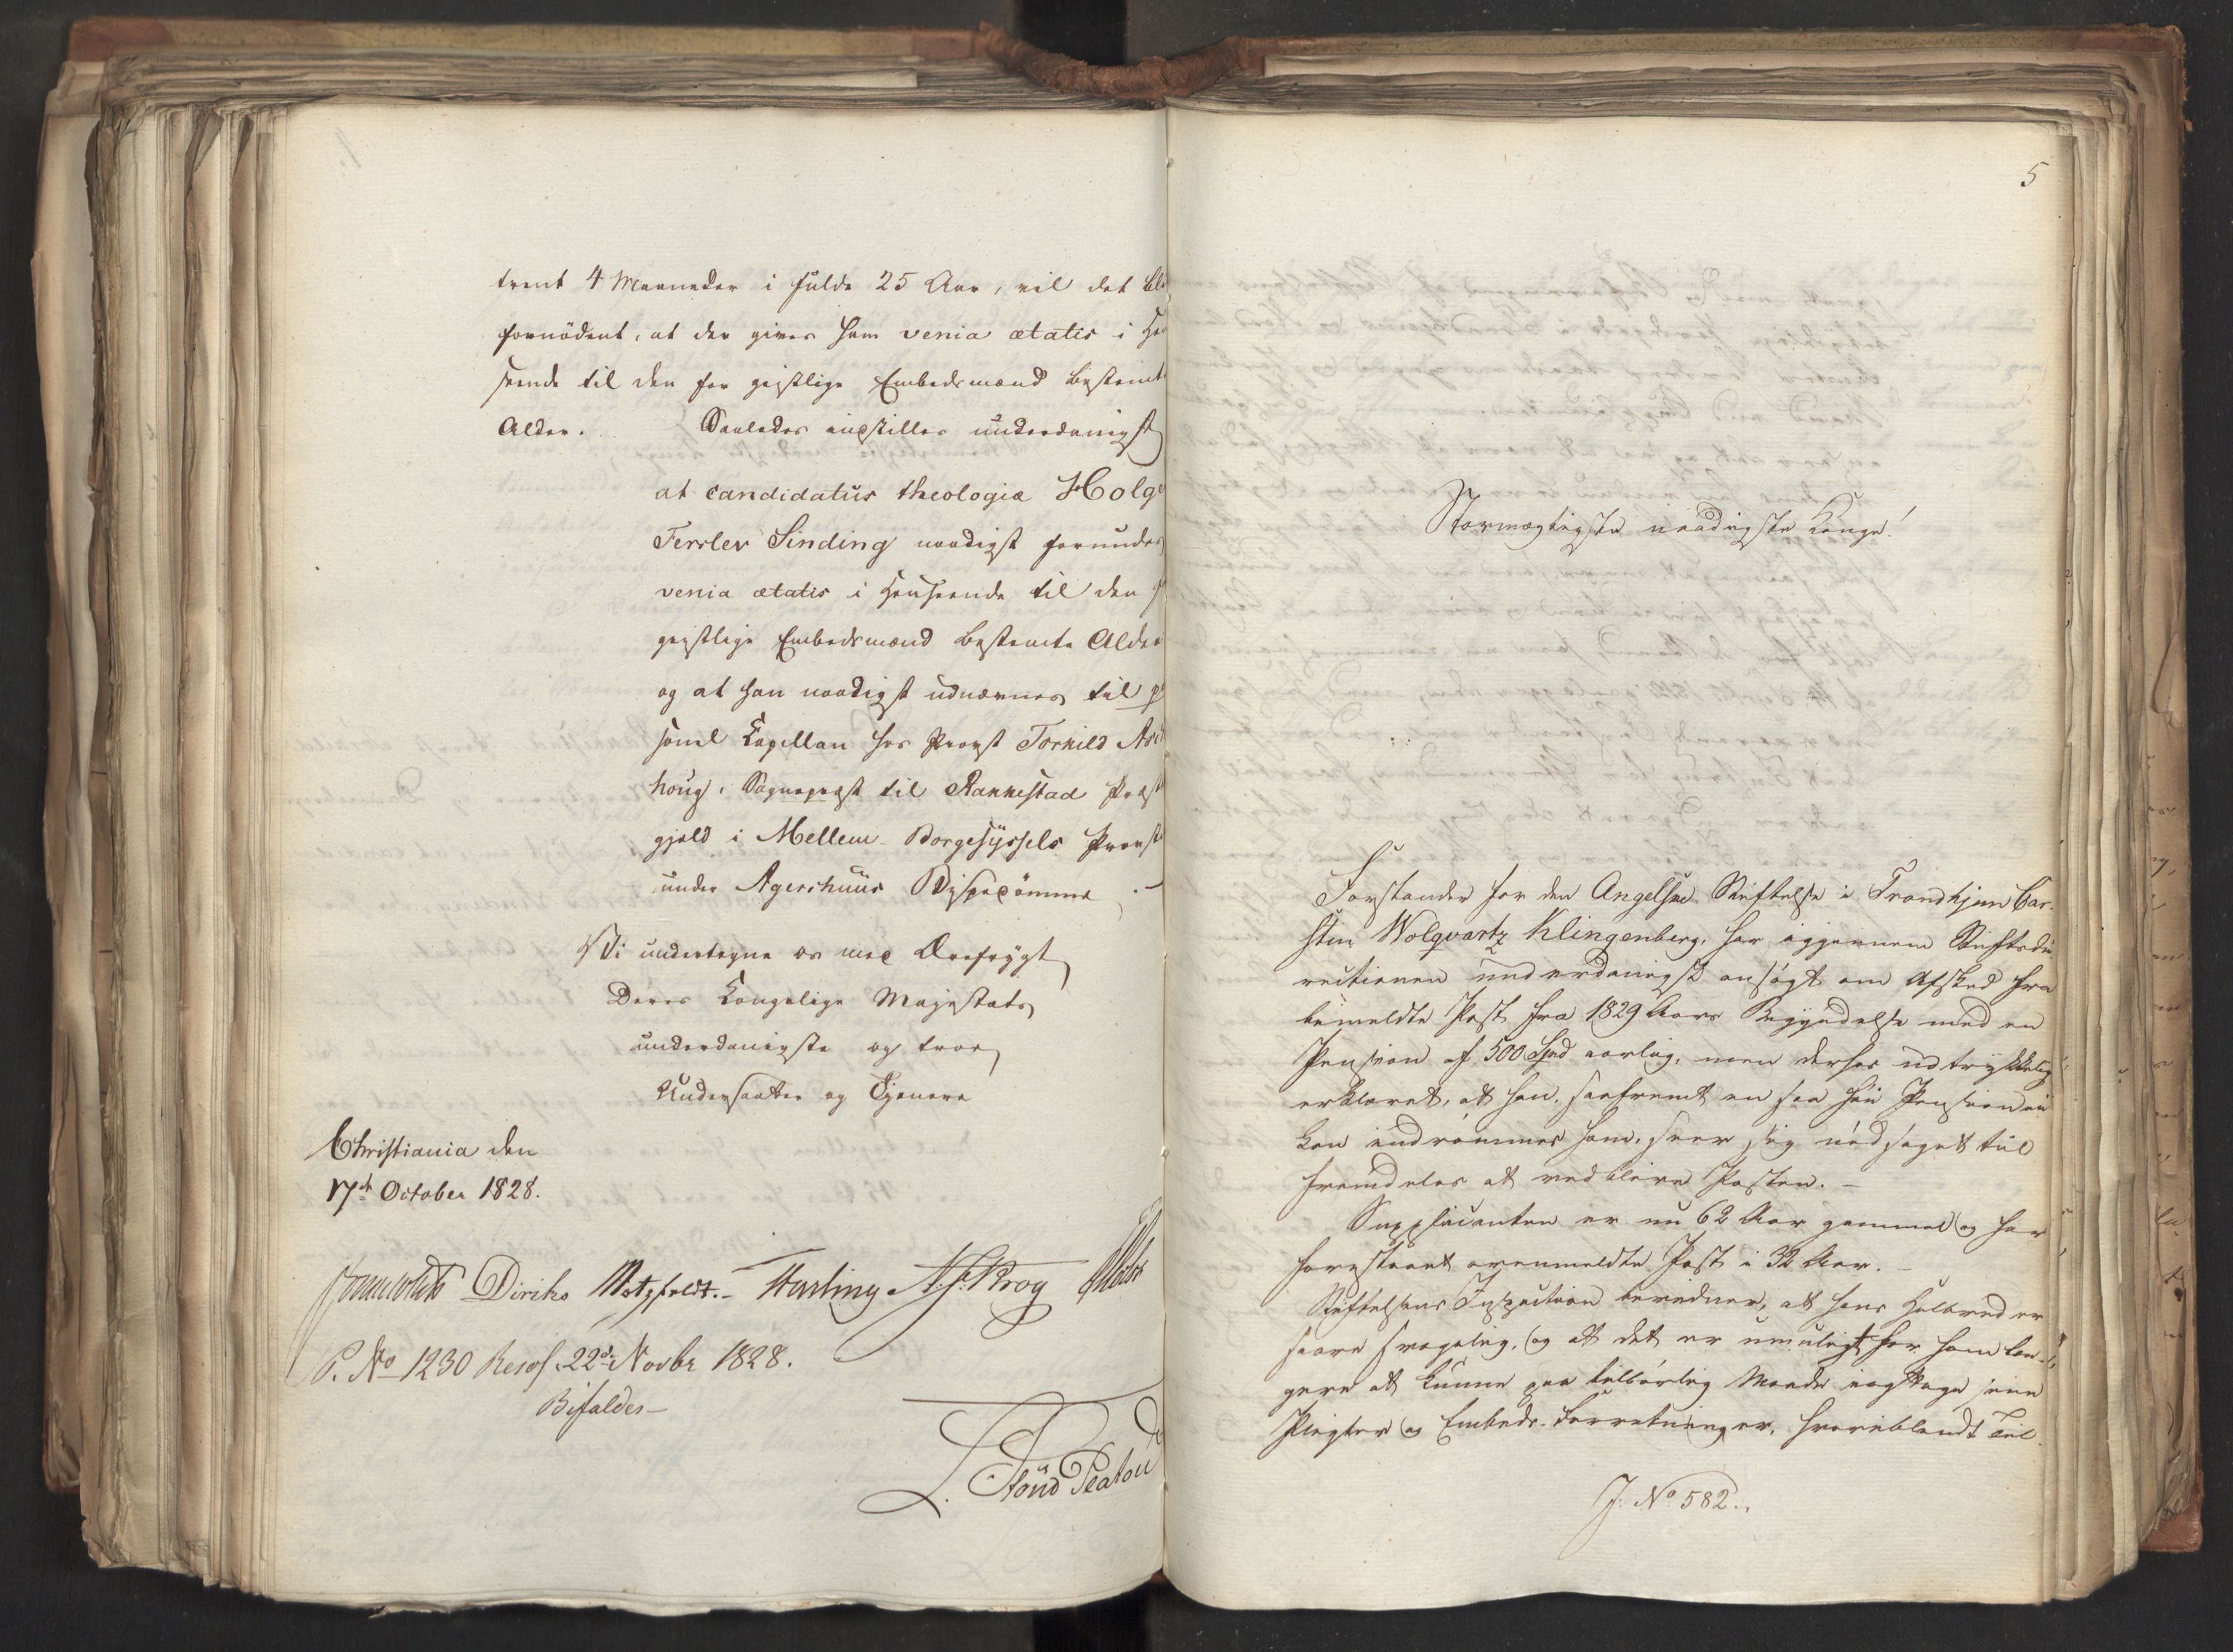 trent 4 Maaneder i fulde 25 Aar, vil det bli
fornödent, at der gives ham venia ætatis i Hen
seende til den for geistlige Embedsmænd bestemte
Alder. Saaledes indstilles underdanigst
at candidatus theologiæ Holge
Fersler Sinding naadigst forundes
venia ætatis i Henseende til den f
geistlige Embedsmænd bestemte Alder
og at han naadigst udnævnes til p
sonel Kapellan hos Provst Torkild As
houg, Sognepræst til Rakkestad Præst
gjeld i Mellem-Borgesyssels Provst
under Agershuus Bispedömme.-
Vi undertegne os med Ærefrygt
Deres Kongelige Majestæts
underdanigste og troe
Undersaatter og Tjenere
Christiania den
17de October 1828.
Diriks Motzfeldt.- Harling A. F. Krog
P. No 1230 Resol. 22de Novbr 1828.
Bifaldes-
L. Stoud Platou
5
Stormægtigste naadigste Konge!
Forstander for den Angelske Stiftelse i Trondhjem Car-
sten Wolqvartz Klingenberg, har igjennem Stiftsdi
rectionen underdanigst ansögt om Afsked fra
bemeldte Post fra 1829 Aars Begyndelse med en
Pension af 500 Spd aarlig, men derhos udtrykkelig
erklæret, at han, saafremt en saa stor Pension ei
kan indrömmes ham, seer sig nödsaget til
fremdeles at vedblive Posten.-
Supplicanten er nu 62 Aar gammel og har
forestaaet ovenmeldte Post i 32 Aar.-
Stiftelsens Inspection bevidner, at hans Helbred er
saare svagelig, og at det er umuligt for ham læn-
gere at kunne paa tilbörlig Maade iagttage sine
Pligter og Embeds-Forretninger, hvoriblandt Til
J. No 582.